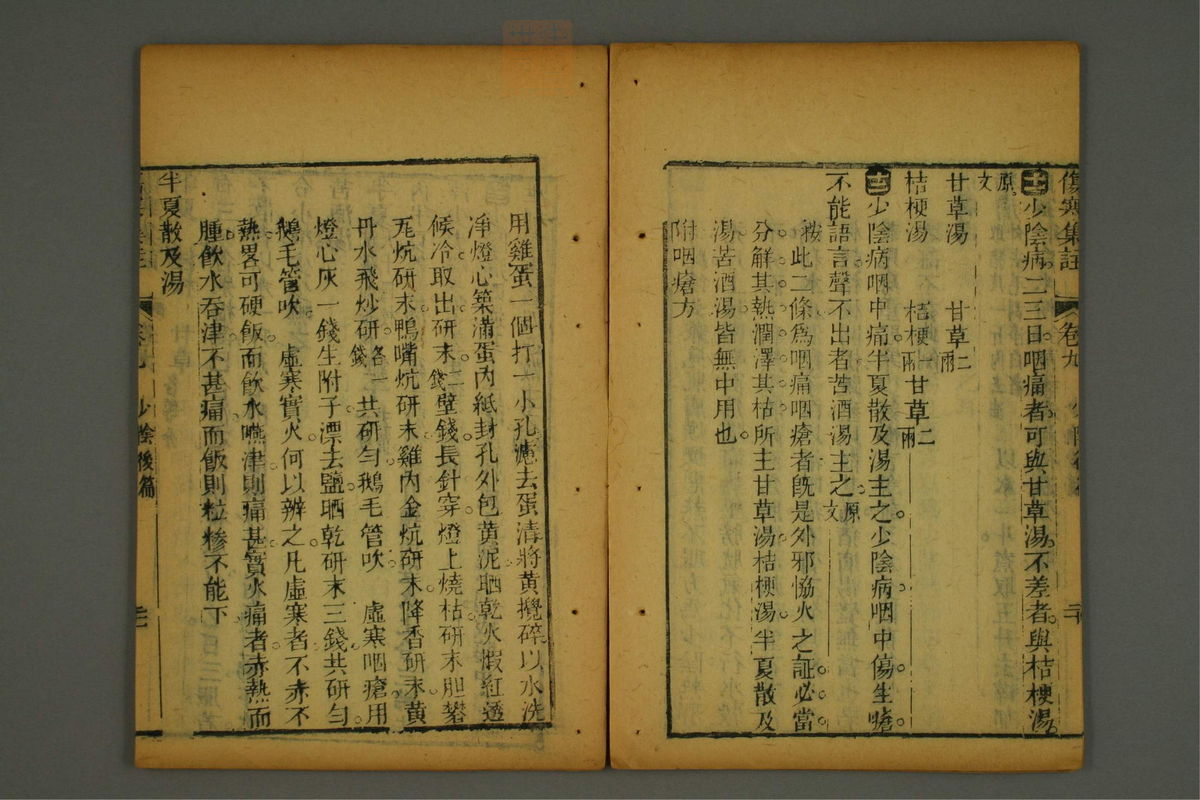 傷寒集註 卷九 少陰後篇 二十
十二 少陰病二三日咽痛者可與甘草湯不差者與桔梗湯
原文
甘草湯 甘草二兩
桔梗湯 桔梗一兩 甘草二兩
十三 少陰病咽中痛半夏散及湯主之少陰病咽中傷生瘡
不能語言聲不出者苦酒湯主之原文
按此二條爲咽痛咽瘡者旣是外邪恊火之証必當
分解其熱潤澤其枯所主甘草湯桔梗湯半夏散及
湯苦酒湯皆無中用也
附咽瘡方
用雞蛋一個打一小孔傾去蛋清將黃攪碎以水洗
凈燈心築滿蛋內紙封孔外包黃泥晒乾火煆紅過
候冷取出研末二錢壁錢長針穿燈上燒枯研末胆礬
瓦炕研末鴨嘴炕研末雞內金炕研末降香研末黃
丹水飛炒研各一錢共研勻鵝毛管吹 虛寒咽瘡用
燈心灰一錢生附子漂去鹽晒乾研末三錢共研勻
鵝毛管吹 虛寒實火何以辨之凡虛寒者不赤不
熱畧可硬飯而飲水嚥津則痛甚實火痛者赤熱而
腫飲水吞津不甚痛而飯則粒糝不能下
半夏散及湯
卷九 少陰後篇